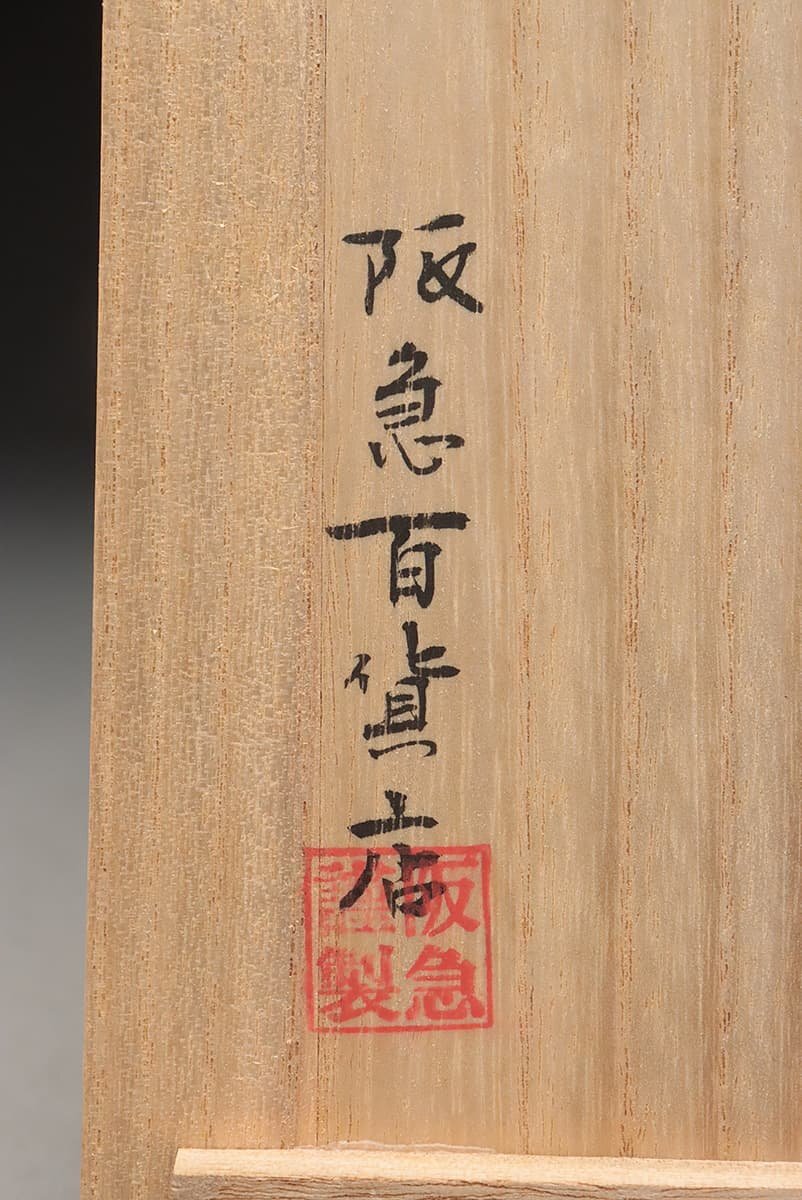 阪急百貨店
阪急
謹製